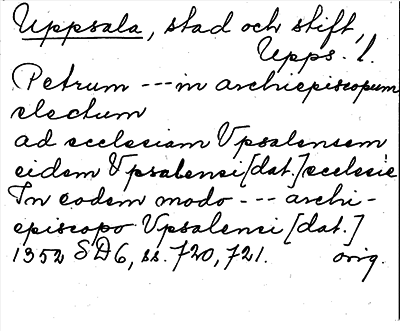 Uppsala, stad och stift,
Upps. l.
Petrum --- in archiepiscopum
electum
ad ecclesiam Vpsalensem
eidem Vpsalensi [dat.] ecclesie
In eodem modo --- archi-
episcopo Vpsalensi [dat.]
1352 SD6, ss. 720, 721. orig.